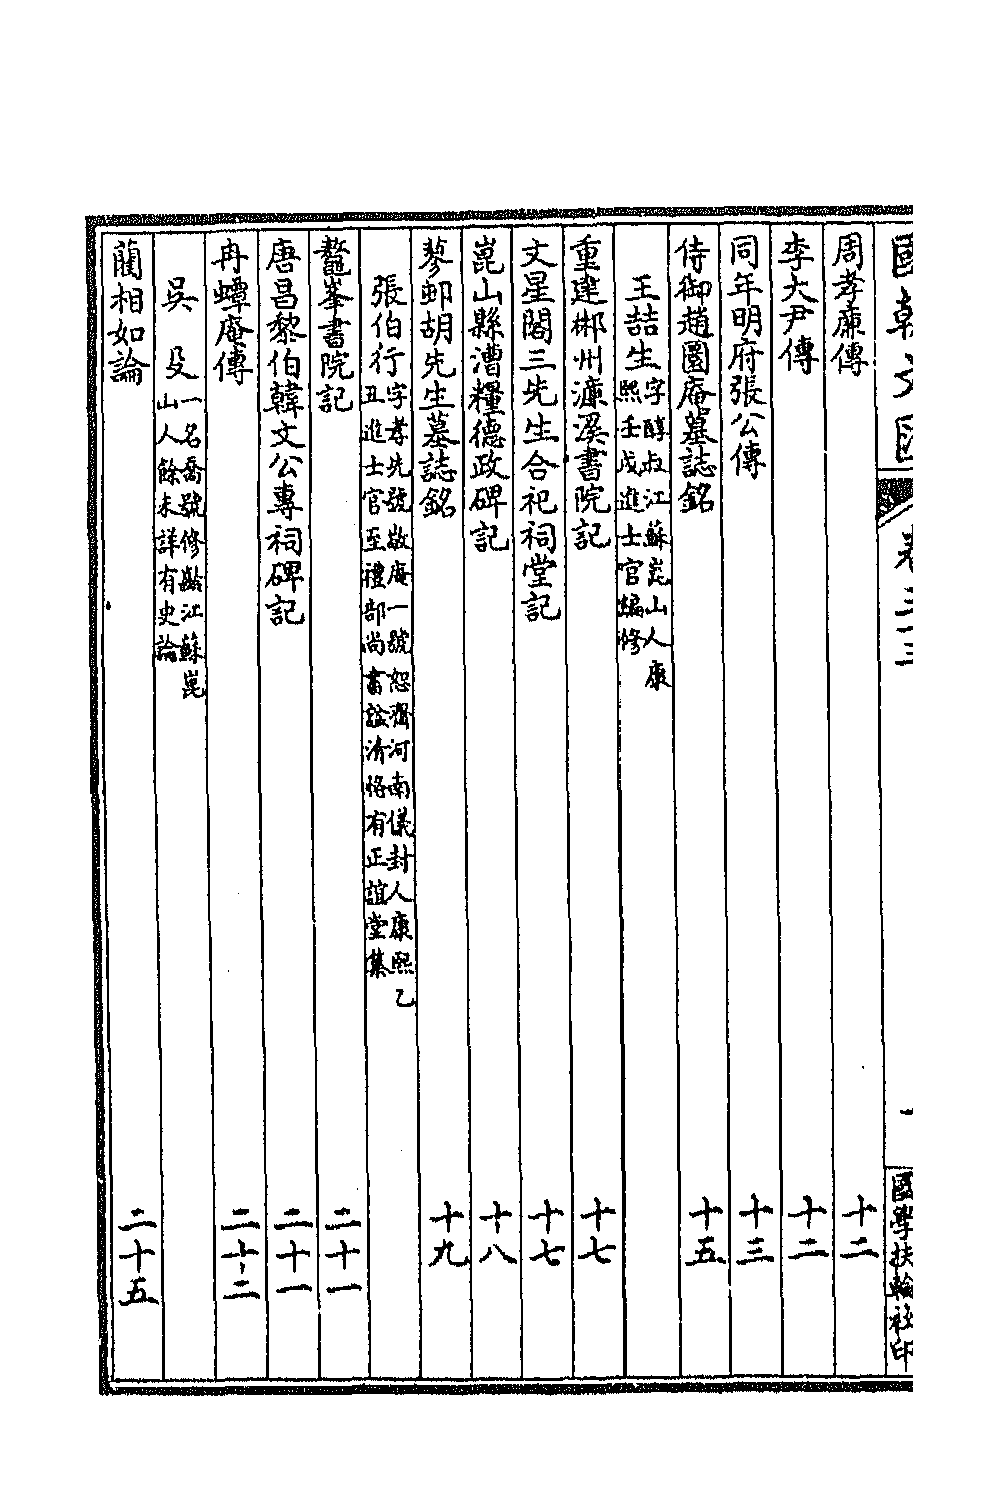 國朝文匯
卷三十三
一
國學扶輪社印
周孝廉傳 十二
李大尹傳 十二
同年明府張公傳 十三
侍御趙園庵墓誌銘 十五
王喆生 字醇叔江蘇崑山人康
熙壬戌進士官編修
重建郴州濂溪書院記 十七
文星閣三先生合祀祠堂記 十七
崑山縣漕糧德政碑記 十八
蓼邨胡先生墓誌銘 十九
張伯行 字孝先號敬庵一號恕齋河南儀封人康熙乙
丑進士官至禮部尚書諡清恪有正誼堂集
鼇峯書院記 二十一
唐昌黎伯韓文公專祠碑記 二十一
冉蟫庵傳 二十二
吳殳 一名喬號修齡江蘇崑
山人餘未詳有史論
藺相如論 二十五